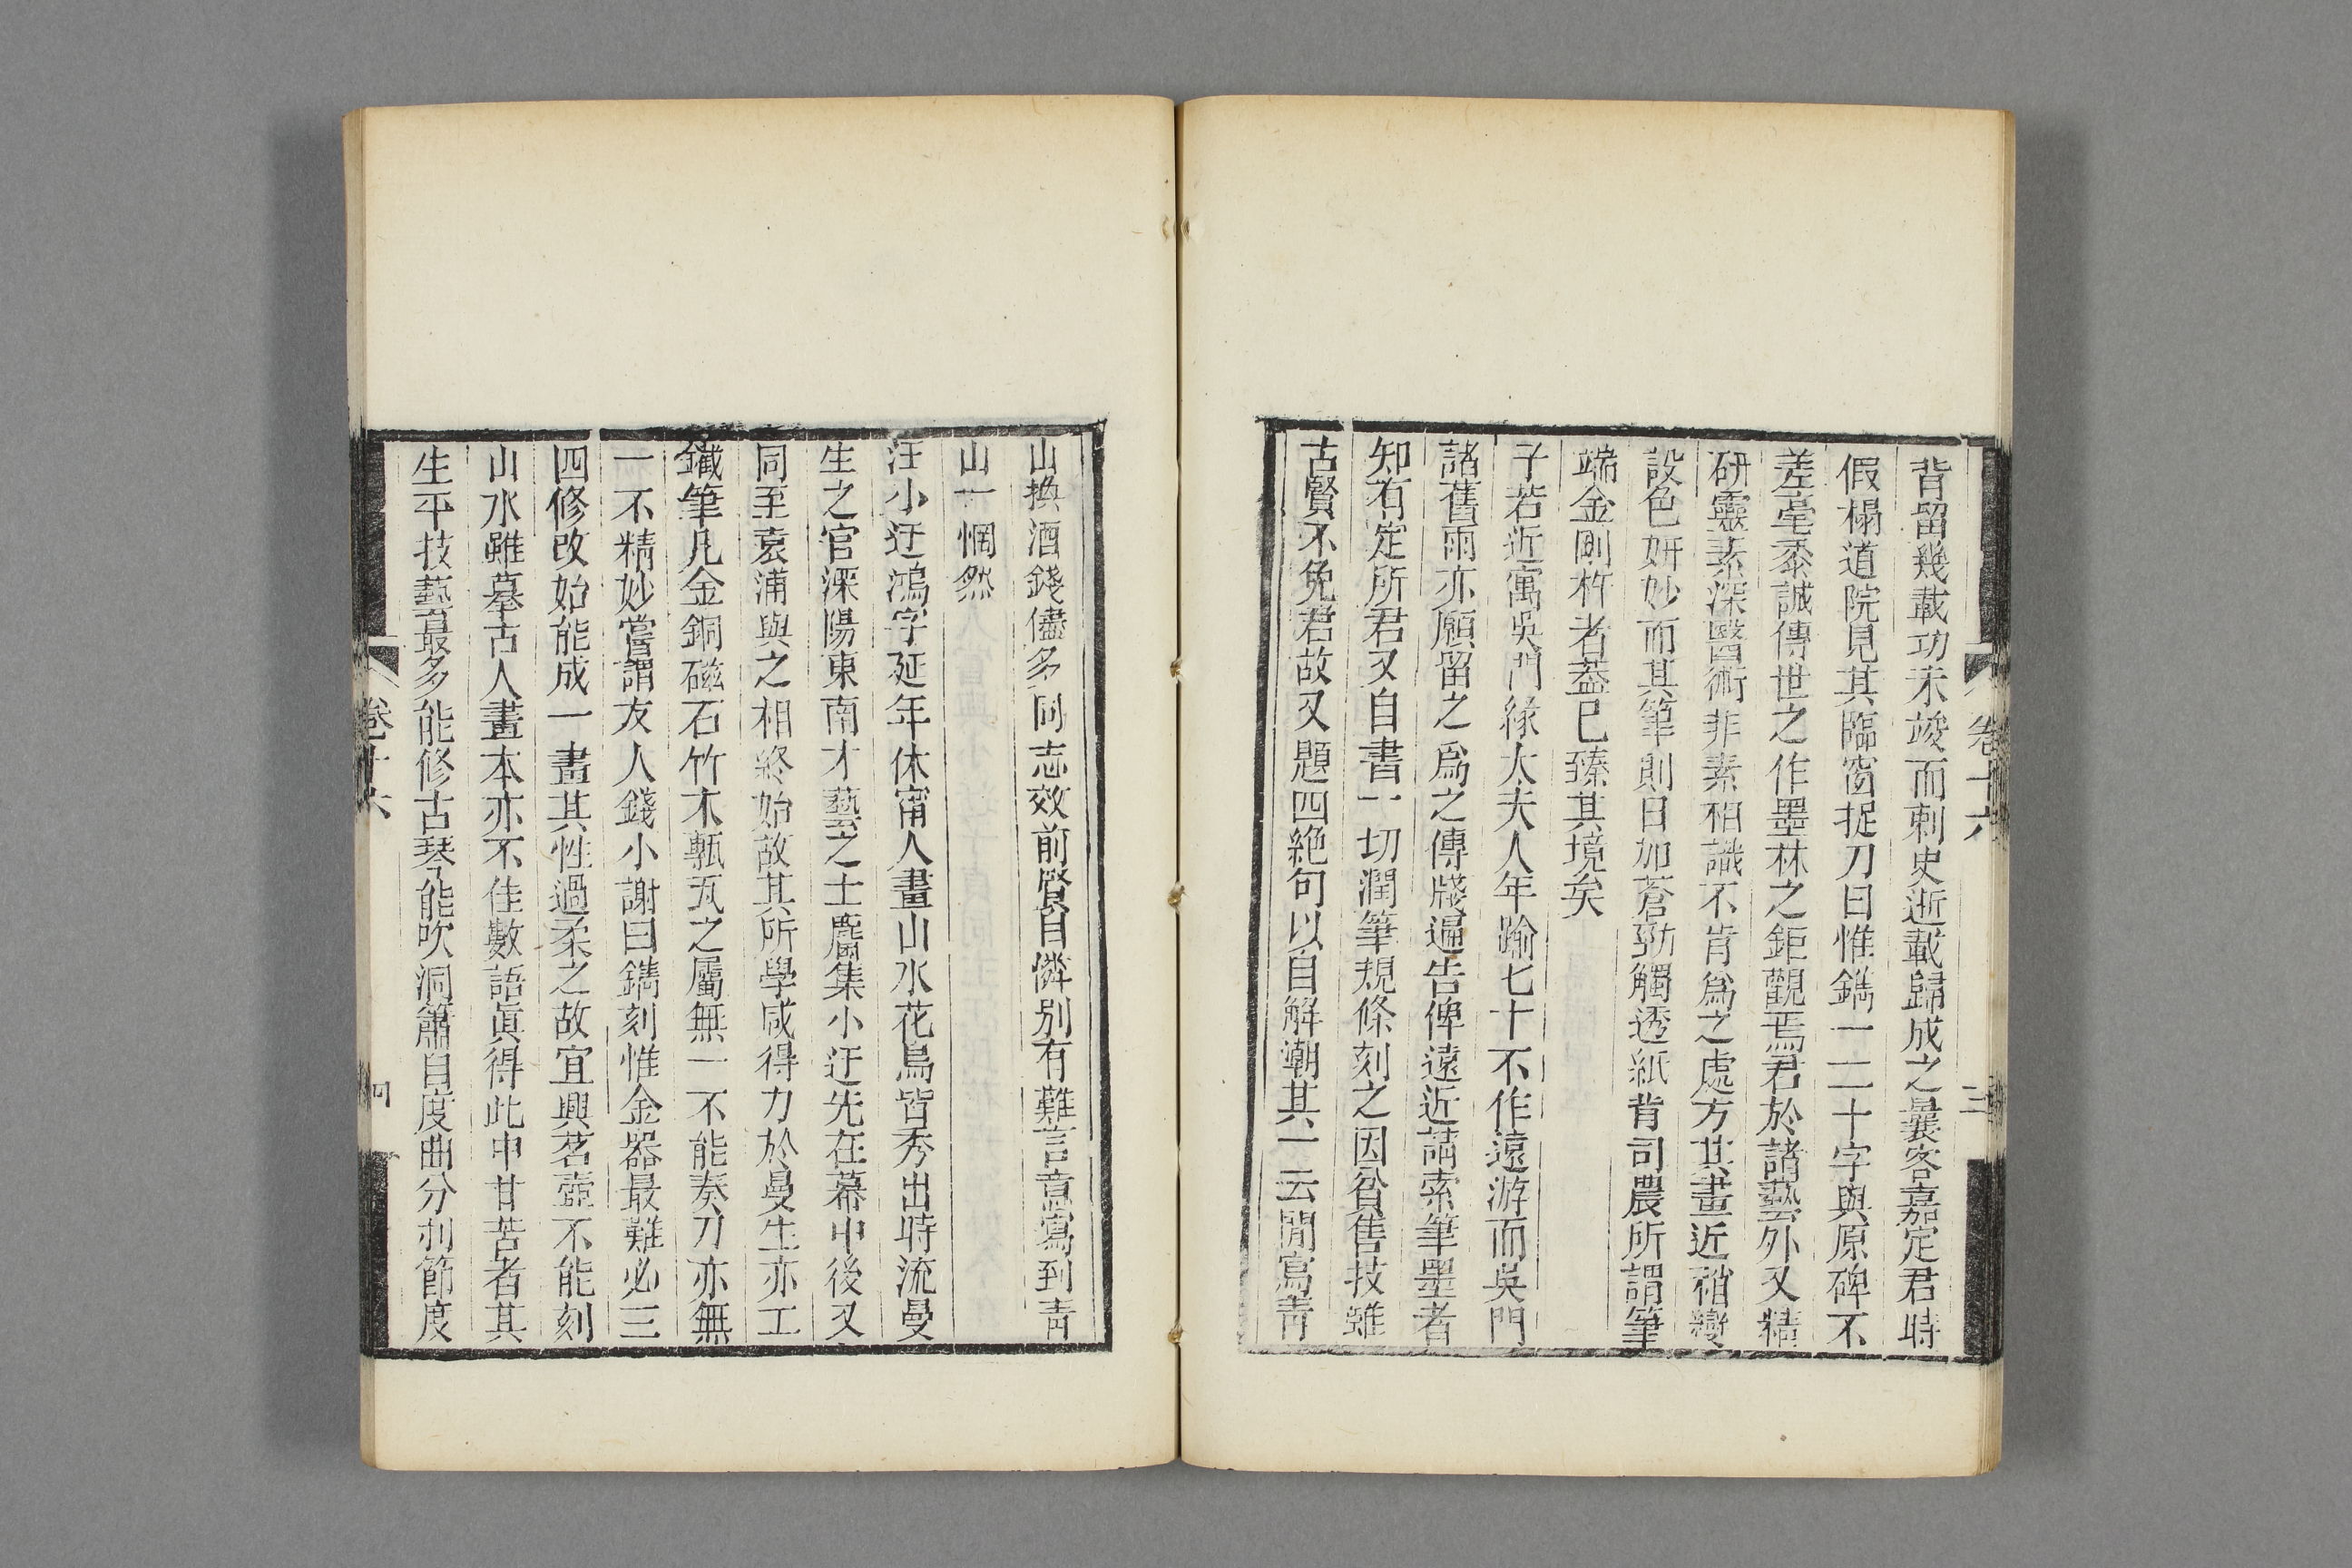 背留幾載功未竣而刺史逝載歸成之曩客嘉定君時
假榻道院見其臨窗捉刀曰惟鐫一二十字與原碑不
差毫黍誠傳世之作墨林之鉅觀焉君於諸藝外又精
研靈素深醫術非素相識不肯爲之處方其畫近稍變
設色妍妙而其筆則日加蒼勁觸透紙背司農所謂筆
端金剛杵者蓋已臻其境矣
子若近寓吳門緣太夫人年踰七十不作遠游而吳門
諸舊雨亦願留之爲之傳牋遍告俾遠近請索筆墨者
知有定所君又自書一切潤筆規條刻之因貧售技雖
古賢不免君故又題四絶句以自解潮其一云閒寫青
卷十六
三
山換酒錢儘多同志效前賢自憐別有難言意寫到青
山一惘然
汪小迂鴻字延年休甯人畫山水花鳥皆秀出時流曼
生之官溧陽東南才藝之士麕集小迂先在幕中後又
同至袁浦與之相終始故其所學咸得力於曼生亦工
鐵筆凡金銅磁石竹木甎瓦之屬無一不能奏刀亦無
一不精妙嘗謂友人錢小謝曰鐫刻惟金器最難必三
四修改始能成一畫其性過柔之故宜興茗壺不能刻
山水雖摹古人畫本亦不佳數語眞得此中甘苦者其
生平技藝最多能修古琴能吹洞簫自度曲分刌節度
卷十六
四